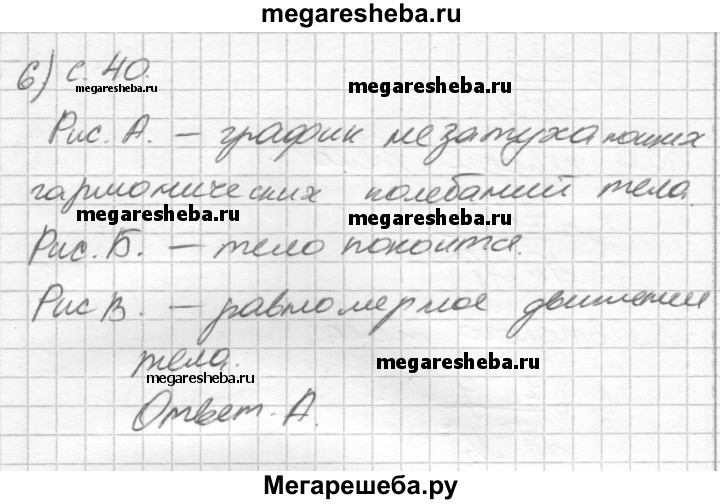 megaresheba.ru
6) с. 40.
megaresheba.ru
megaresheba.ru
Рис. А. – график незатухающих
гармонических колебаний тела.
megaresheba.ru
megaresheba.ru
Рис. Б. – тело покоится.
Рис В. – равномерное движение
тела.
megaresheba.ru
megaresheba.ru
Ответ. А.
Мегарешеба.ру